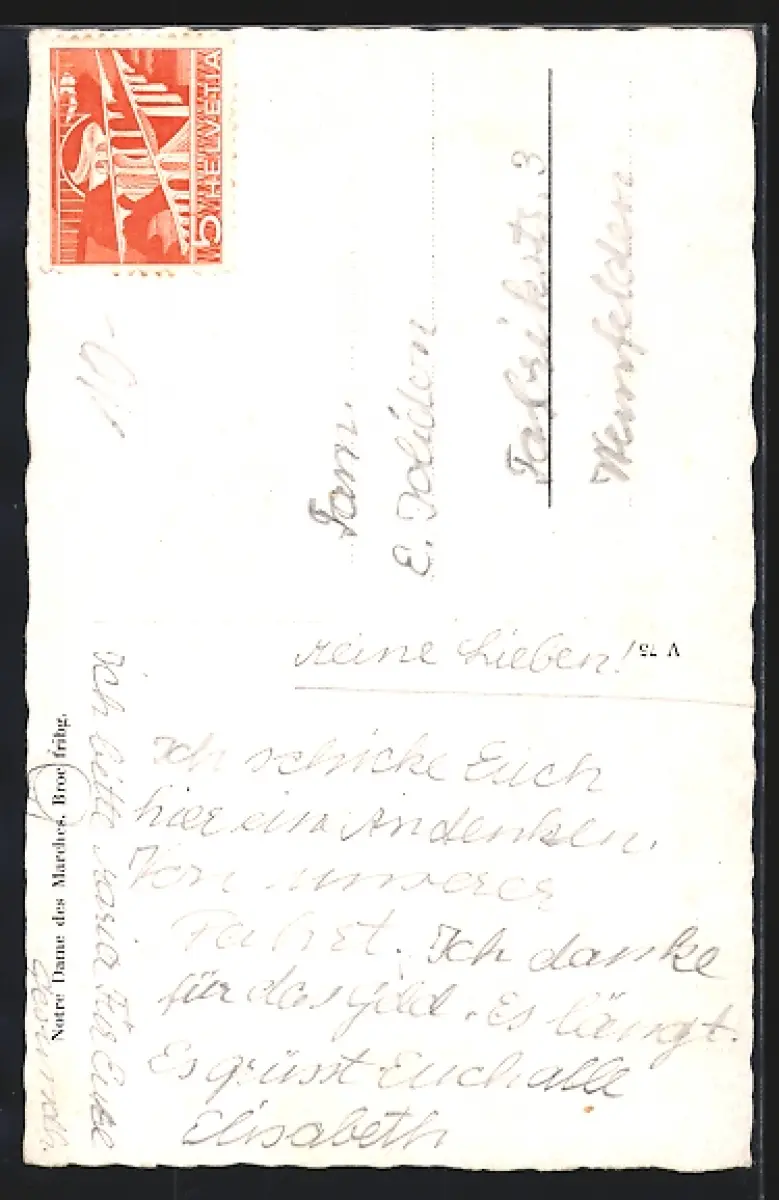 5 HELVETIA
Fam.
E.
Fabrikstr. 3
Weinfelden
V 75
Meine Lieben!
Ich schicke Euch
hier ein Andenken.
Von unserer
Fahrt. Ich danke
für das Geld. Es längt.
Es grüsst Euch alle
Elisabeth
Ich bitte Maria für Eure
Notre Dame des Marches. Broc fribg.